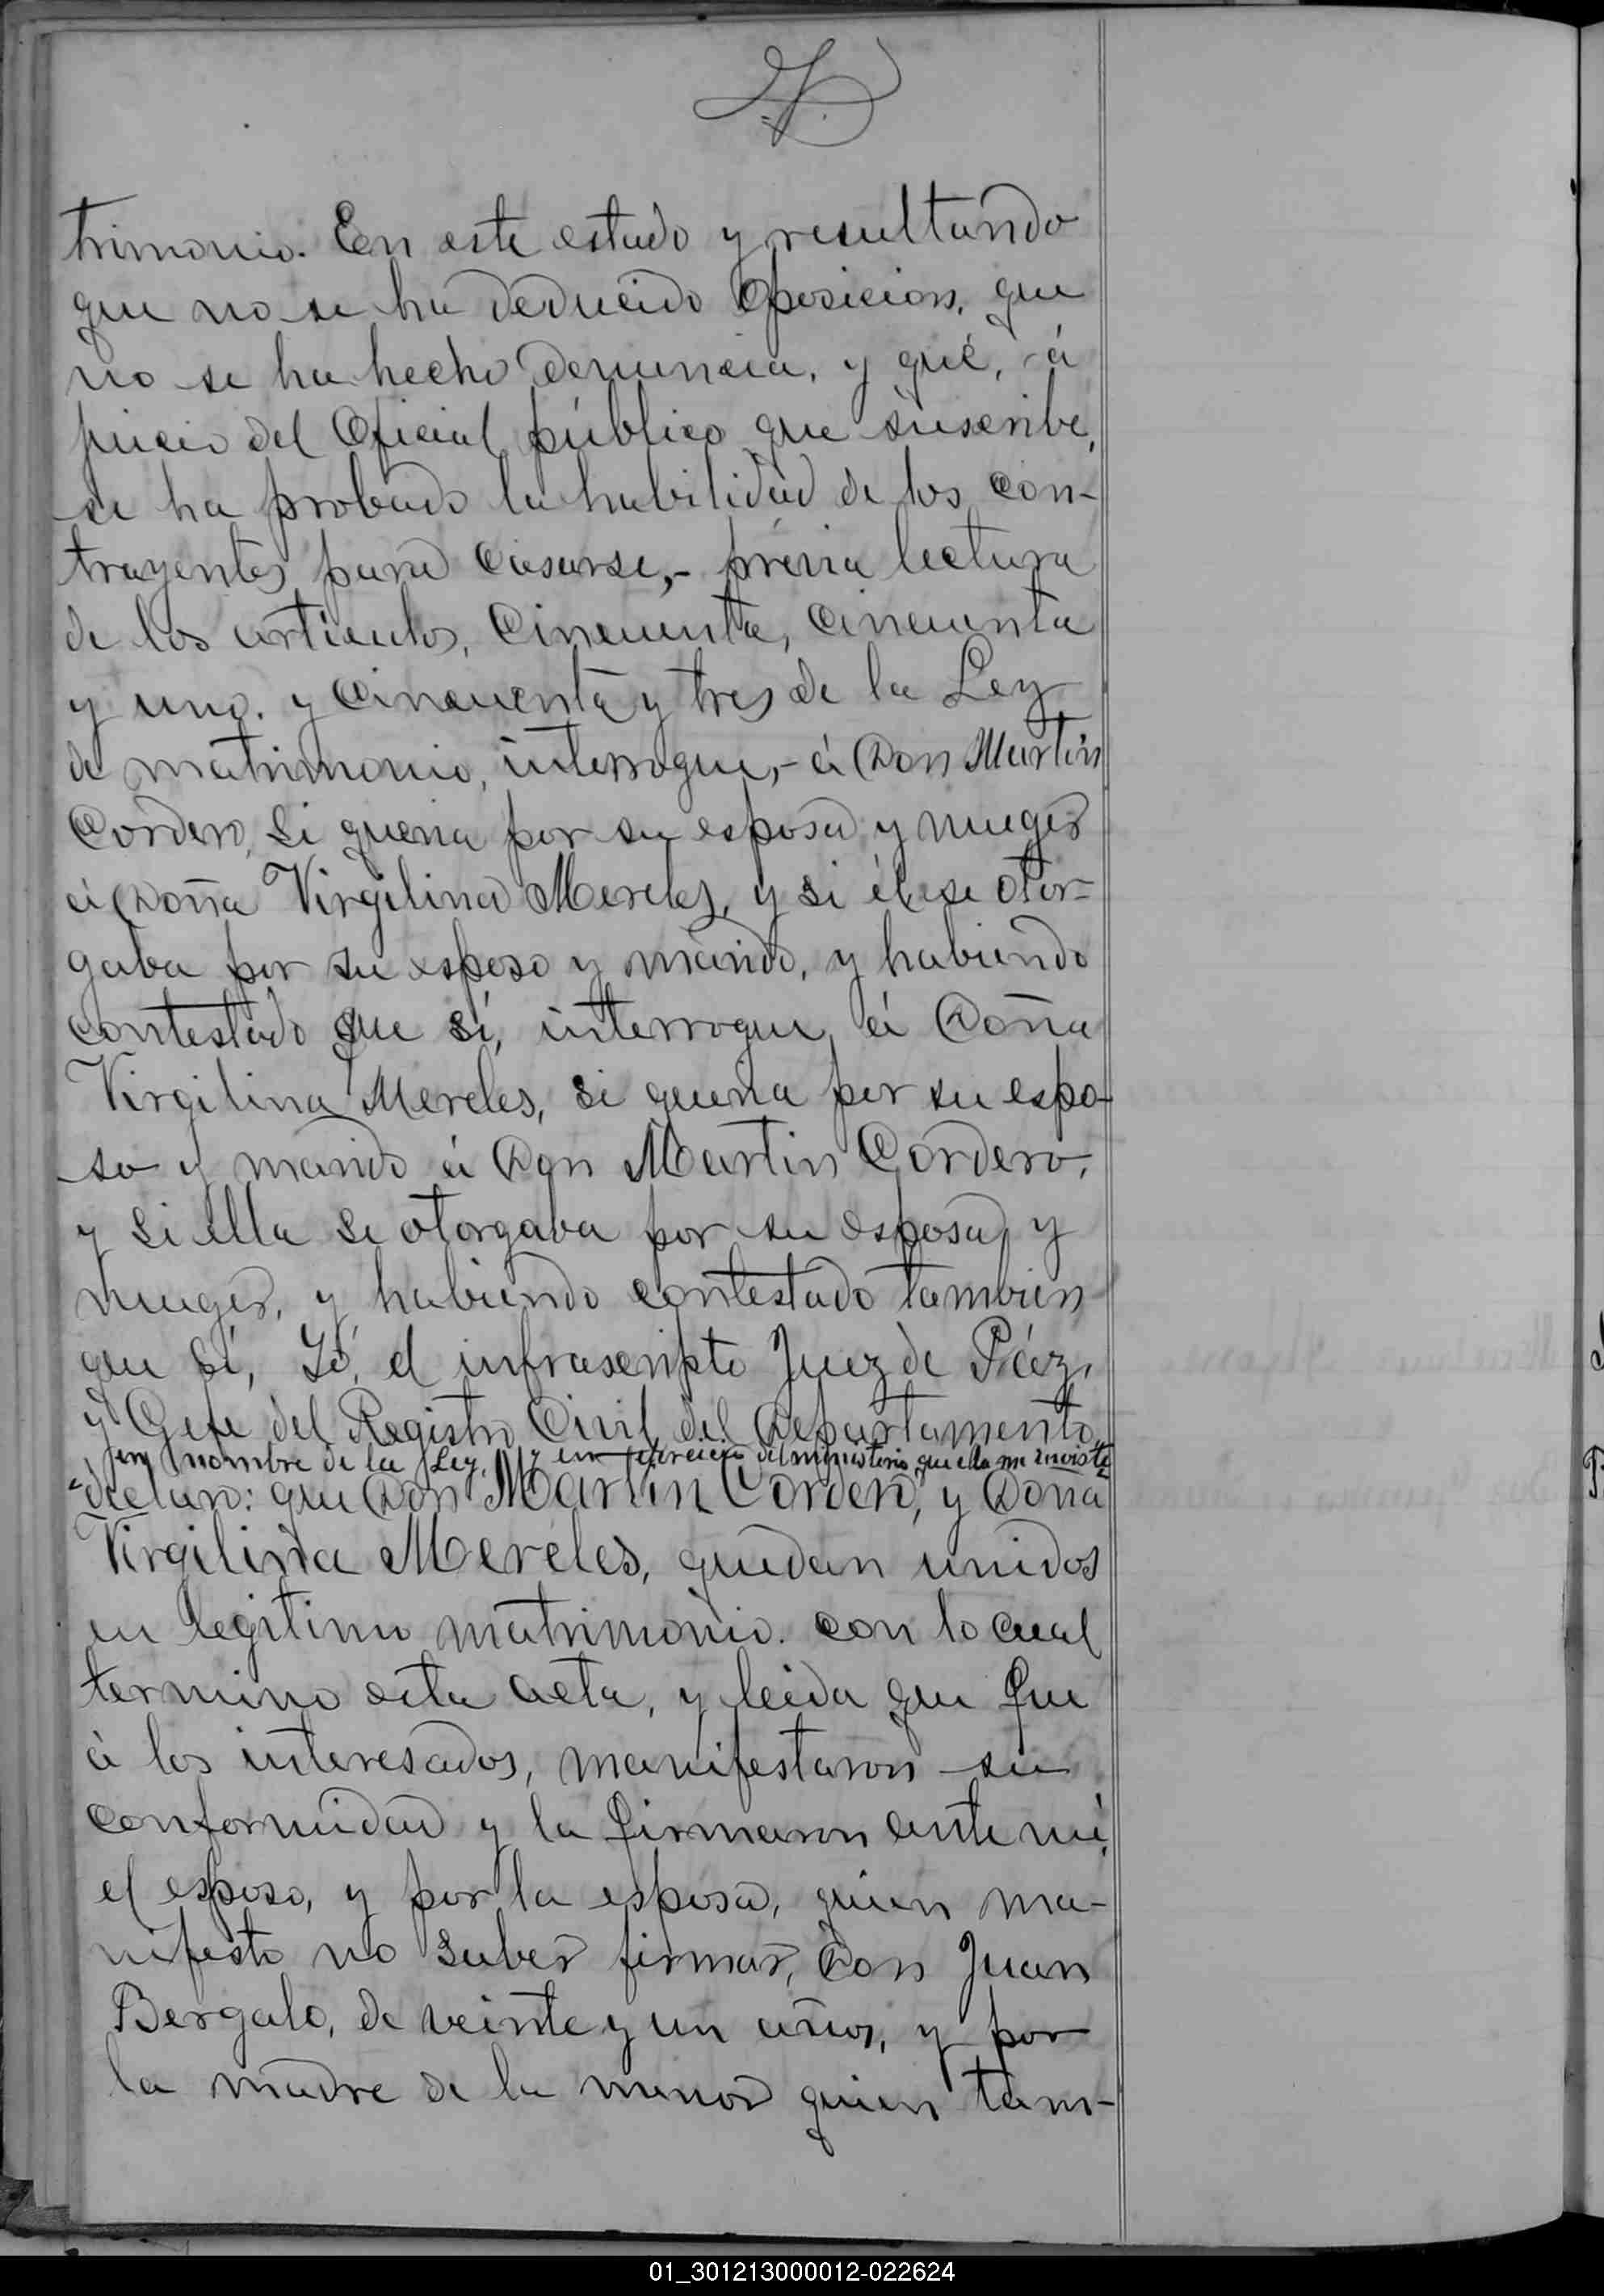 trimonio. En este estado y resultando
que no se ha deducido oposicion, que
no se ha hecho denuncia, y qué, á
juicio del Oficial público que suscribe,
se ha probado la habilidad de los con-
trayentes para casarse,- prévia lectura
de los articulos, Cincuenta, cincuenta
y uno. y cincuenta y tres de la Ley
de matrimonio, interrogue,- á Don Martin
Cordero, si queria por su esposa y muger
á Doña Virgilina Mereles, y si él se otor-
gaba por su esposo y marido, y habiendo
contestado que sí, interrogue, á Doña
Virgilina Mereles, si queria por su espo-
so y marido á Don Martin Cordero,
y si ella se otorgava por su esposa y
muger, y habiendo contestado tambien
que sí, Yó, el infrascripto Juez de Páz,
y Gefe del Registro Civil del Departamento,
en nombre de la Ley, y en ejercicio del ministerio que ella me inviste
declaro: que Don Martin Cordero, y Doña
Virgilina Mereles, quedan unidos
en legitimo matrimonio. con lo cual
termino esta acta, y leida que fue
á los interesados, manifestaron su
conformidad y la firmaron ante mí,
el esposo, y por la esposa, quien ma-
nifesto no saber firmar, Don Juan
Bergalo, de veinte y un años, y por
la madre de la menor quien tam-
01_301213000012-022624